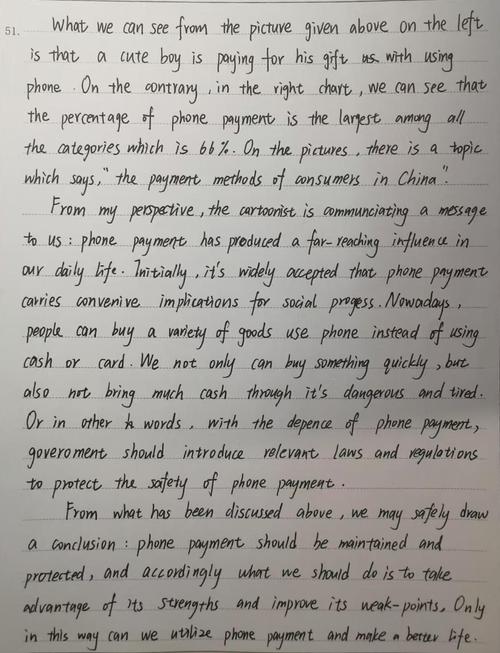 51. What we can see from the picture given above on the left
is that a cute boy is paying for his gift us with using
phone. On the contrary, in the right chart, we can see that
the percentage of phone payment is the largest among all
the categories which is 66%. On the pictures, there is a topic
which says, "the payment methods of consumers in China".
From my perspective, the cartoonist is communciating a message
to us: phone payment has produced a far-reaching influence in
our daily life. Initially, it's widely accepted that phone payment
carries convenive implications for social progess. Nowadays,
people can buy a variety of goods use phone instead of using
cash or card. We not only can buy something quickly, but
also not bring much cash through it's dangerous and tired.
Or in other words, with the depence of phone payment,
goveroment should introduce relevant laws and regulations
to protect the safety of phone payment.
From what has been discussed above, we may safely draw
a conclusion: phone payment should be maintained and
protected, and accordingly what we should do is to take
advantage of its strengths and improve its weak-points. Only
in this way can we utilize phone payment and make a better life.